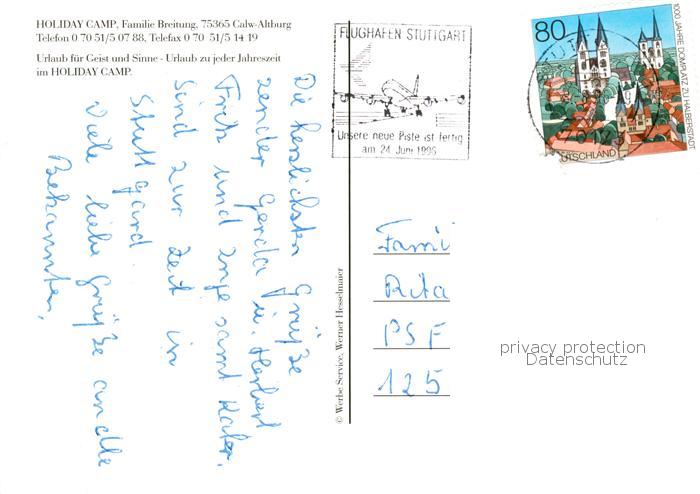 HOLIDAY CAMP, Familie Breitung, 75365 Calw-Altburg
Telefon 0 70 51/5 07 88, Telefax 0 70 51/5 14 19
Urlaub für Geist und Sinne - Urlaub zu jeder Jahreszeit
im HOLIDAY CAMP.
Die herzlichsten Grüße
sender Gerda u. Herbert
Fritz und Inge samt Kater,
sind zur Zeit in
Stuttgard
Viele liebe Grüße an alle
Bekannten,
© Werbe Service, Werner Hesselmaier
FLUGHAFEN STUTTGART
Unsere neue Piste ist fertig
am 24 Juni 1996
80
1000 JAHRE DOMPLATZ ZU HALBERSTADT
UTSCHLAND
Fami
Rita
PSF
125
privacy protection
Datenschutz